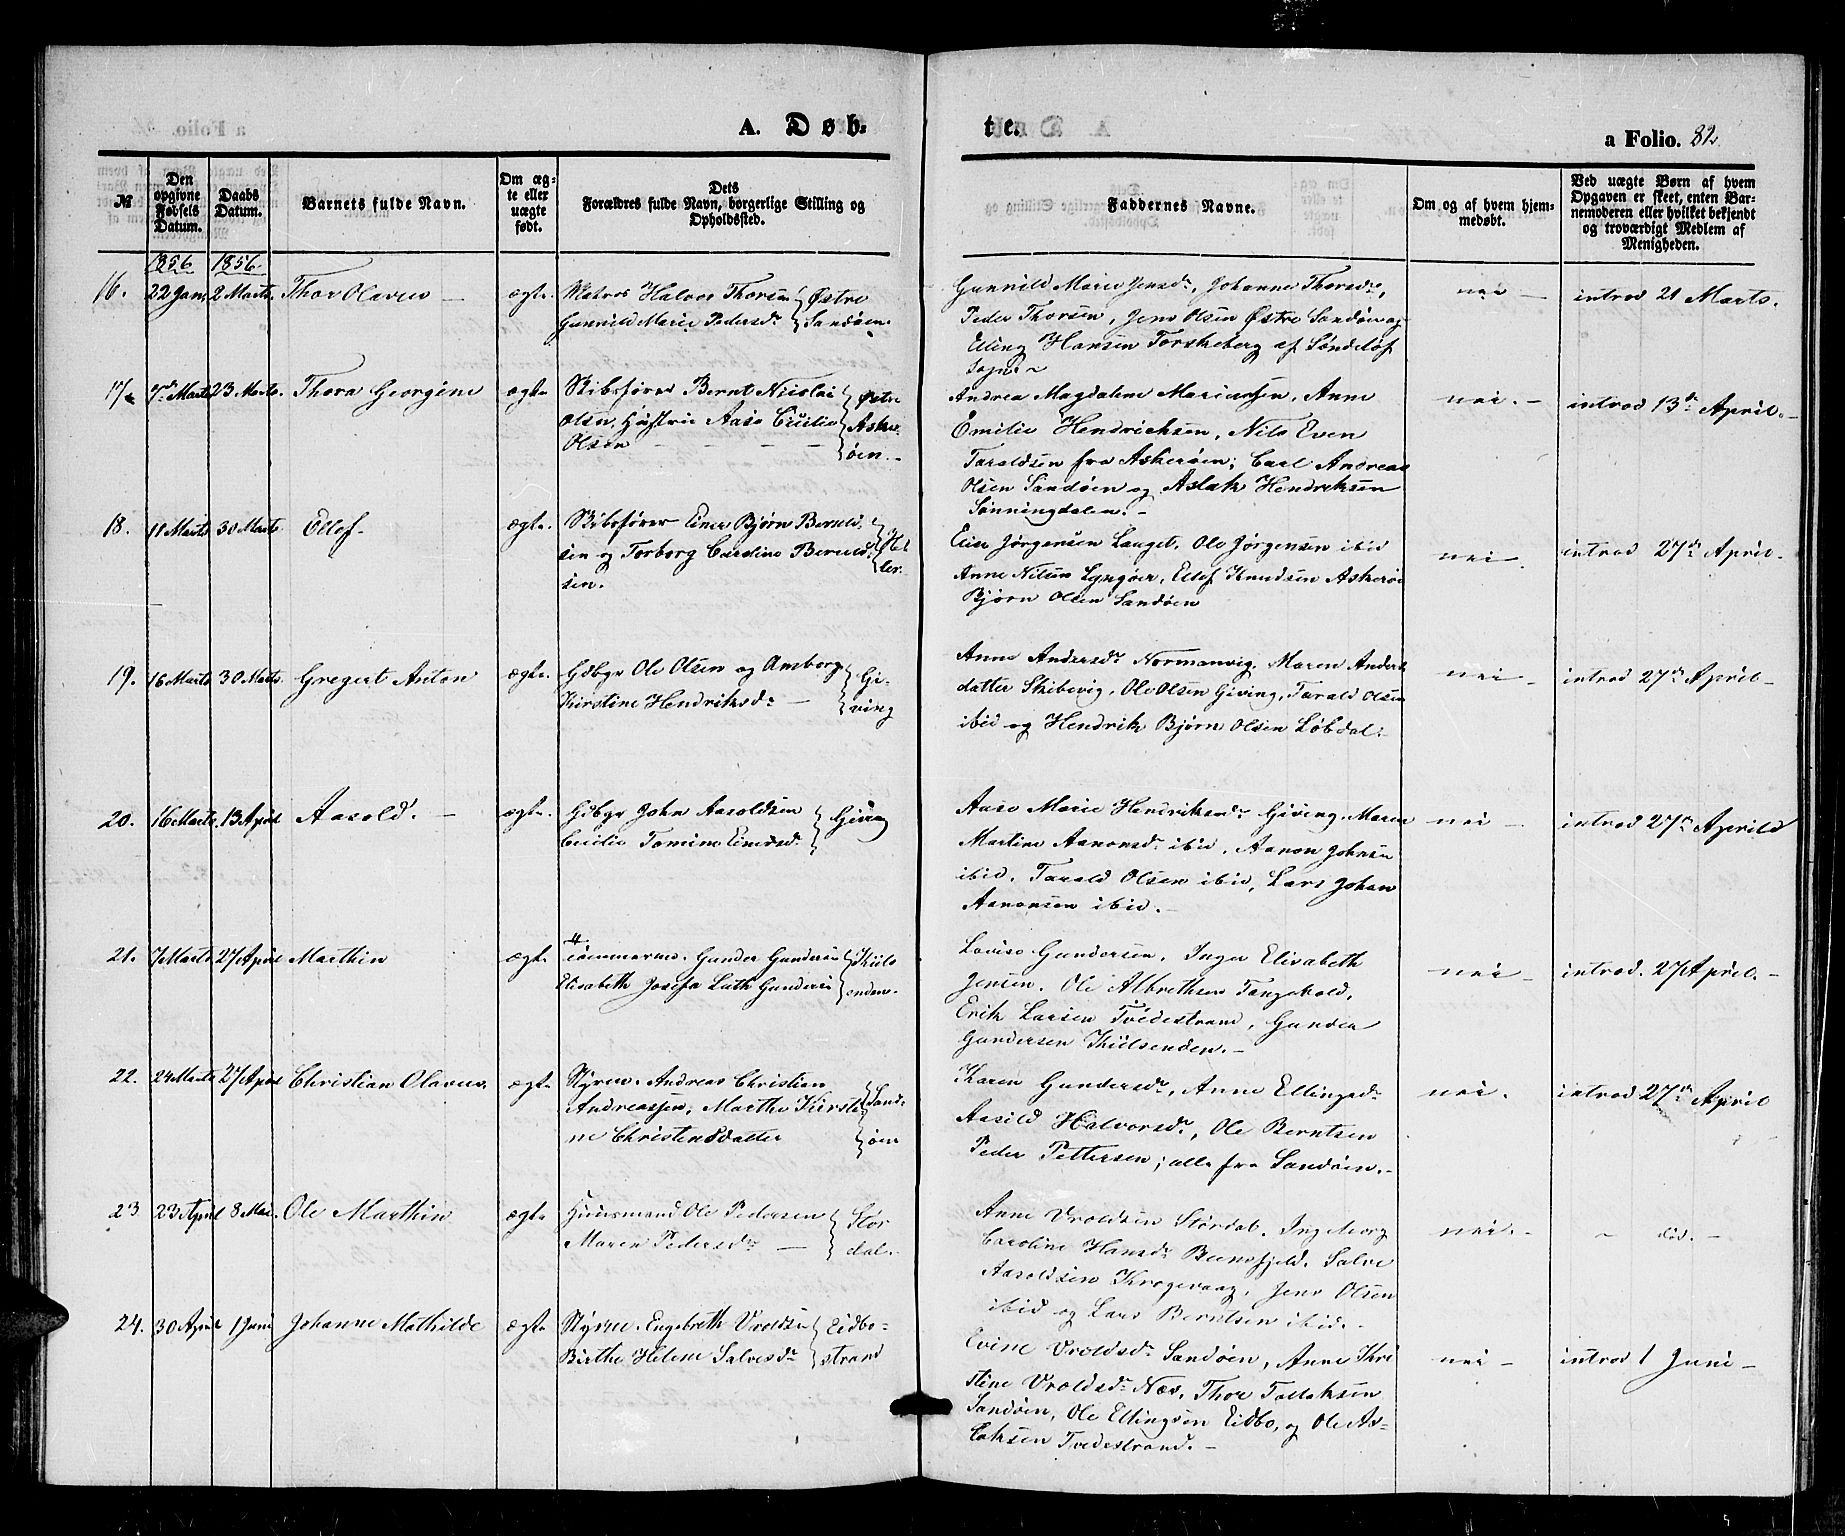 A. Døb-
te.
a Folio. 82.
№
Den opgivne Fødsels Datum.
Daabs Datum.
Barnets fulde Navn.
Om ægte eller uægte født.
Dets Forældres fulde Navn, borgerlige Stilling og Opholdssted.
Faddernes Navne.
Om og af hvem hjemmedøbt.
Ved uægte Børn af hvem Opgaven er skeet, enten Barnemoderen eller hvilket bekjendt og troværdigt Medlem af Menigheden.
1856 1856.
16. 22 Jan. 2 Marts. Thor Olaves — ægte. Matros Halvor Thorsen Østre
Gunnild Marie Pedersdr. Sandøen.
Gunnild Marie Jensdr, Johanne Thorsdr,
Peder Thorsen, Jens Olsen Østre Sandøen og
Elling Hansen Torskeberg af Søndeløf
Sogn.
nei — introd 21 Marts.
17. 7de Marts 23 Marts. Thora Georgine ægte Skibsfører Bernt Nicolai Østre
Olsen, Hustrue Aase Cecilie Asker-
Olsen — — — øen. —
Andrea Magdalene Mariussen, Anne
Emilie Hendrichsen, Nils Even
Taraldsen fra Askerøen; Carl Andreas
Olsen Sandøen og Aslak Hendriksen
Sønningdalen. —
nei. — introd 13de April. —
18. 11 Marts 30 Marts. Ellef. ægte. Skibsfører Einer Bjørn Beruld-
sen og Torborg Caroline Beruld-
sen.
Elise Jørgensen Lauget, Ole Jørgensen ibid
Anne Nilsen Lyngøer, Ellef Knudsen Askerøe
Bjørn Olsen Sandøen
nei —. introd 27de April —
19. 16 Marts 30 Marts. Gregert Anton ægte. Gdbgr Ole Olsen og Amborg Gi-
Kirstine Hendriksdr — ving
Anne Andersdr Normanvig, Maren Anders
datter Skibevig, Ole Olsen Giving, Tarald Olsen
ibid og Hendrik Bjørn Olsen Løbdal. —
nei — introd 27de April —
20. 16 Marts. 13 April Aasold. — ægte. Gdbgr John Aasoldsen Giving
Cecilie Tomine Einersdr
Aase Marie Hendriksdr Giving, Maren
Martine Aanonsdr ibid, Aanon Johnsen
ibid, Tarald Olsen ibid, Lars Johan
Aanonsen ibid. —
nei — introd 27de April
21. 7 Marts 27 April Marthin ægte Tømmermd. Gunder Gundersen Kiils-
Elisabeth Josefa Luth Gundersen enden.
Lovise Gundersen, Inger Elisabeth
Jensen, Ole Albrethsen Tangehold,
Erik Larsen Tvedestrand, Gunder
Gundersen Kiilsenden. —
nei — introd. 27 April. —
22. 24 Marts 27 April Christian Olaves. ægte Styrm. Andreas Christian
Andreassen, Marthe Kirsti- Sand-
ne Christensdatter øen
Karen Gundersdr, Anne Ellingsdr
Aasild Halvorsdr, Ole Berntsen
Peder Pettersen; alle fra Sandøen. —
nei. introd 27de April
23 23 April 8 Mai. Ole Marthin ægte Huusmand Ole Pedersen Stør
Maren Pedersdr — dal.
Anne Vroldsen Størdal, Ingeborg
Caroline Hansdr Buensfjeld, Salve
Aasoldsen Krogevaag, Jens Olsen
ibid og Lars Berntsen ibid. —
nei. — — død. —
24. 30 April 1 Juni Johanne Mathilde ægte Styrm. Engebreth Vroldsen Eidbo-
Birthe Helene Salvesdr strand
Evine Vroldsdr Sandøen, Anne Kri
stine Vroldsdr Næs, Thor Tallaksen
Sandøen, Ole Ellingsen Eidbo, og Ole As-
laksen Tvedestrand. —
nei — introd 1 Juni —